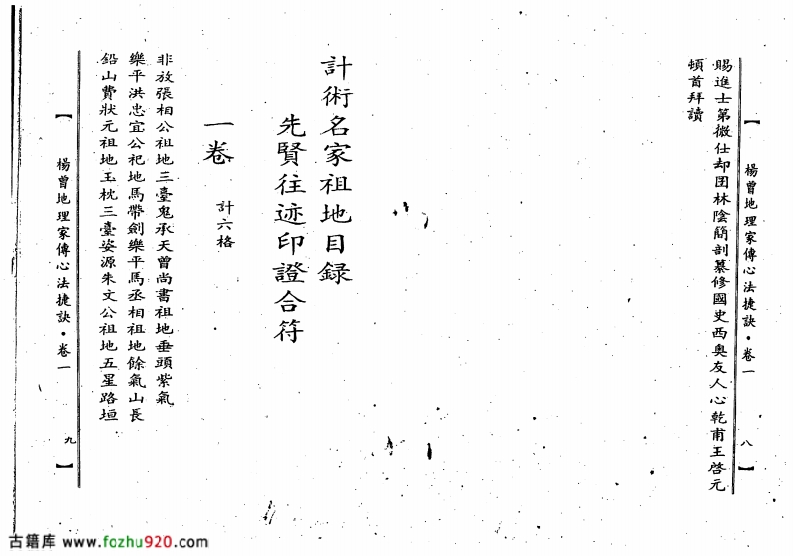 楊曾地理家傳心法捷訣·卷一
八
賜進士第撒仕却囝林陰簡剖纂修國史西奥友人心乾甫王啓元
頓首拜讀
計術名家祖地目録
先賢往迹印證合符
一卷 計六格
非放張相公祖地三臺鬼承天曾尚書祖地垂頭紫氣
樂平洪忠宜公祀地馬帶劍樂平馬丞相祖地餘氣山長
鉛山費狀元祖地玉枕三臺姿源朱文公祖地五星路垣
楊曾地理家傳心法捷訣·卷一
九
古籍库 www.fozhu920.com